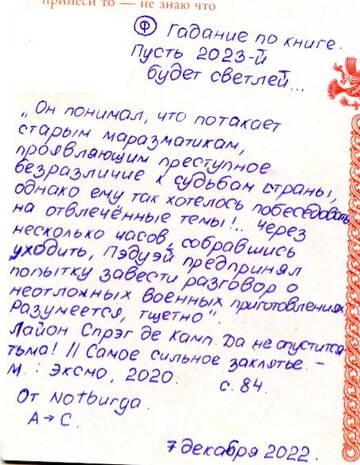 принеси то — не знаю что
Ф Гадание по книге.
Пусть 2023-й
будет светлей...
„Он понимал, что потакает
старым маразматикам,
проявляющим преступное
безразличие к судьбам страны,
однако ему так хотелось побеседовать
на отвлечённые темы!.. Через
несколько часов, собравшись
уходить, Пэдуэй предпринял
попытку завести разговор о
неотложных военных приготовлениях.
Разумеется, тщетно".
Лайон Спрэг де Камп. Да не опустится
тьма! // Самое сильное заклятье. –
М.: Эксмо, 2020. с. 84.
От Notburga.
А → С.
7 декабря 2022.